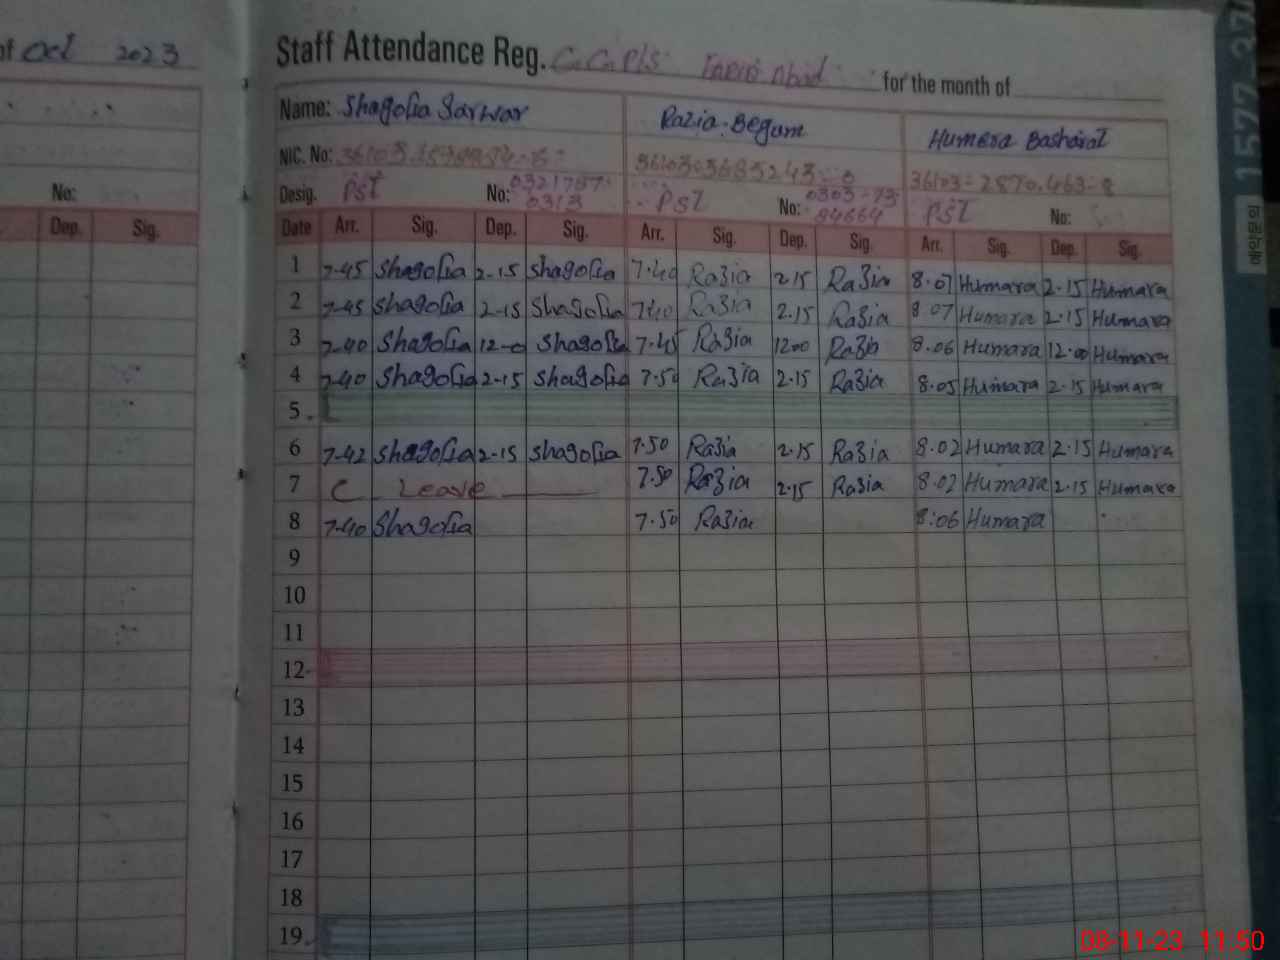 of Oct 2023
Staff Attendance Reg. for the month of
Name: Shagofta Sarwar Razia Begum Humera Basharat
NIC. No: 36103-3685243-0 36103-2870463-8
Desig. PST No: 0321787 0313 PST No: 0303-73 84664 PST No:
No:
Date Arr. Sig. Dep. Sig. Arr. Sig. Dep. Sig. Arr. Sig. Dep. Sig.
Dep. Sig.
1 7-45 Shagofta 2-15 Shagofta 7.40 Razia 2.15 Razia 8.07 Humara 2.15 Humara
2 7-45 Shagofta 2-15 Shagofta 7.40 Razia 2.15 Razia 8.07 Humara 2.15 Humara
3 7-40 Shagofta 12-0 Shagofta 7.45 Razia 12.00 Razia 8.06 Humara 12.00 Humara
4 7-40 Shagofta 2-15 Shagofta 7.50 Razia 2.15 Razia 8.05 Humara 2.15 Humara
5
6 7-42 Shagofta 2-15 Shagofta 7.50 Razia 2.15 Razia 8.02 Humara 2.15 Humara
7 C Leave 7.50 Razia 2.15 Razia 8.02 Humara 2.15 Humara
8 7-40 Shagofta 7.50 Razia 8:06 Humara
9
10
11
12
13
14
15
16
17
18
19
1577-37
예약문의
08-11-23 11:50